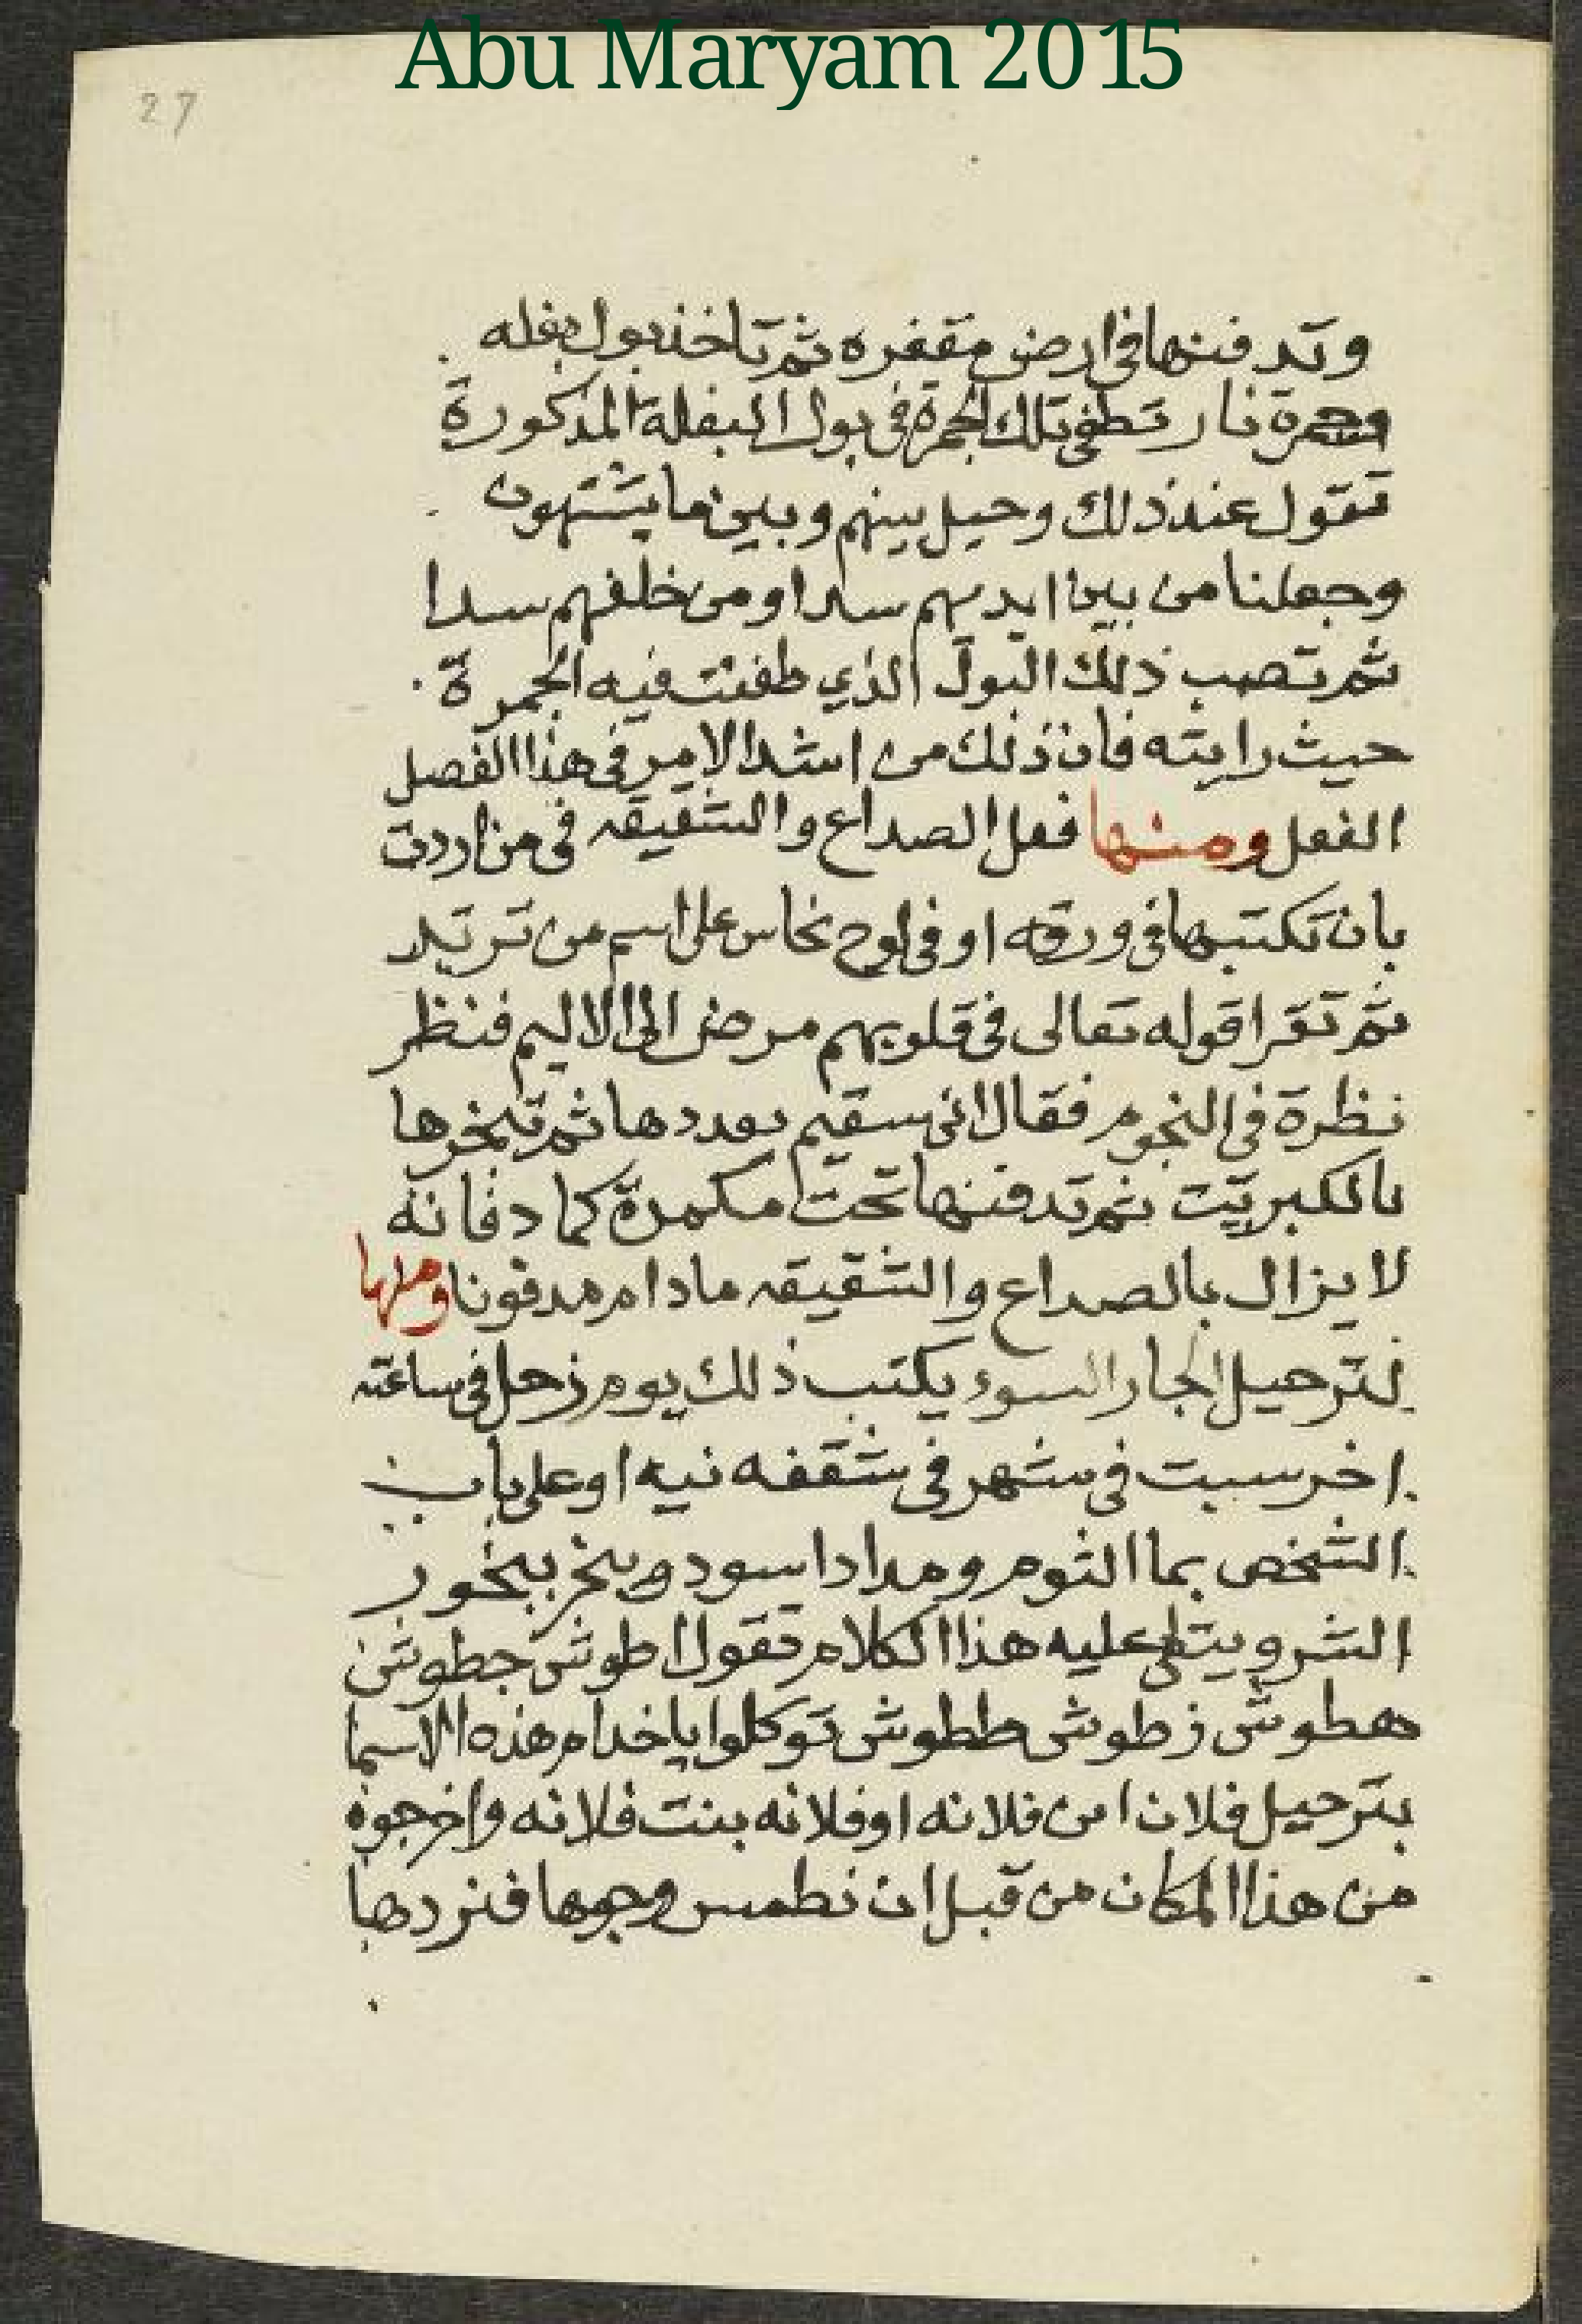 Abu Maryam 2015
27
وتدفنها في ارض مقفره ثم تاخذ بول بغله
وجمرة نار تطفى تلك الجمرة في بول البغلة المذكورة
تقول عند ذلك وحيل بينهم وبين ما يشتهون
وجعلنا من بين ايديهم سدا ومن خلفهم سدا
ثم تصب ذلك البول الذي طفئت فيه الجمرة
حيث رايته فان ذلك من اشد الامر في هذا الفصل
الفعل ومنها فعل الصداع والشقيقه في من اردت
بان تكتبها في ورقه او في لوح نحاس على اسم من تريد
ثم تقرا قوله تعالى في قلوبهم مرض الى الاليم فنظر
نظرة في النجوم فقال انى سقيم بعددها ثم تبخرها
بالكبريت ثم تدفنها تحت مكمدة كما د فانه
لا يزال بالصداع والشقيقه ما دام مدفونا ومنها
لترحيل الجار السوء يكتب ذلك يوم زحل في ساعته
اخر سبت في شهر في شقفه نيه او على باب
الشخص بما الثوم ومدادا سود ويبخر ببخور
الشر ويتلى عليه هذا الكلام تقول اطوش جطوش
هطوش زطوش ططوش توكلوا يا خدام هذه الاسما
بترحيل فلان ابن فلانه او فلانه بنت فلانه واخرجوه
من هذا المكان من قبل ان نطمس وجوها فنردها